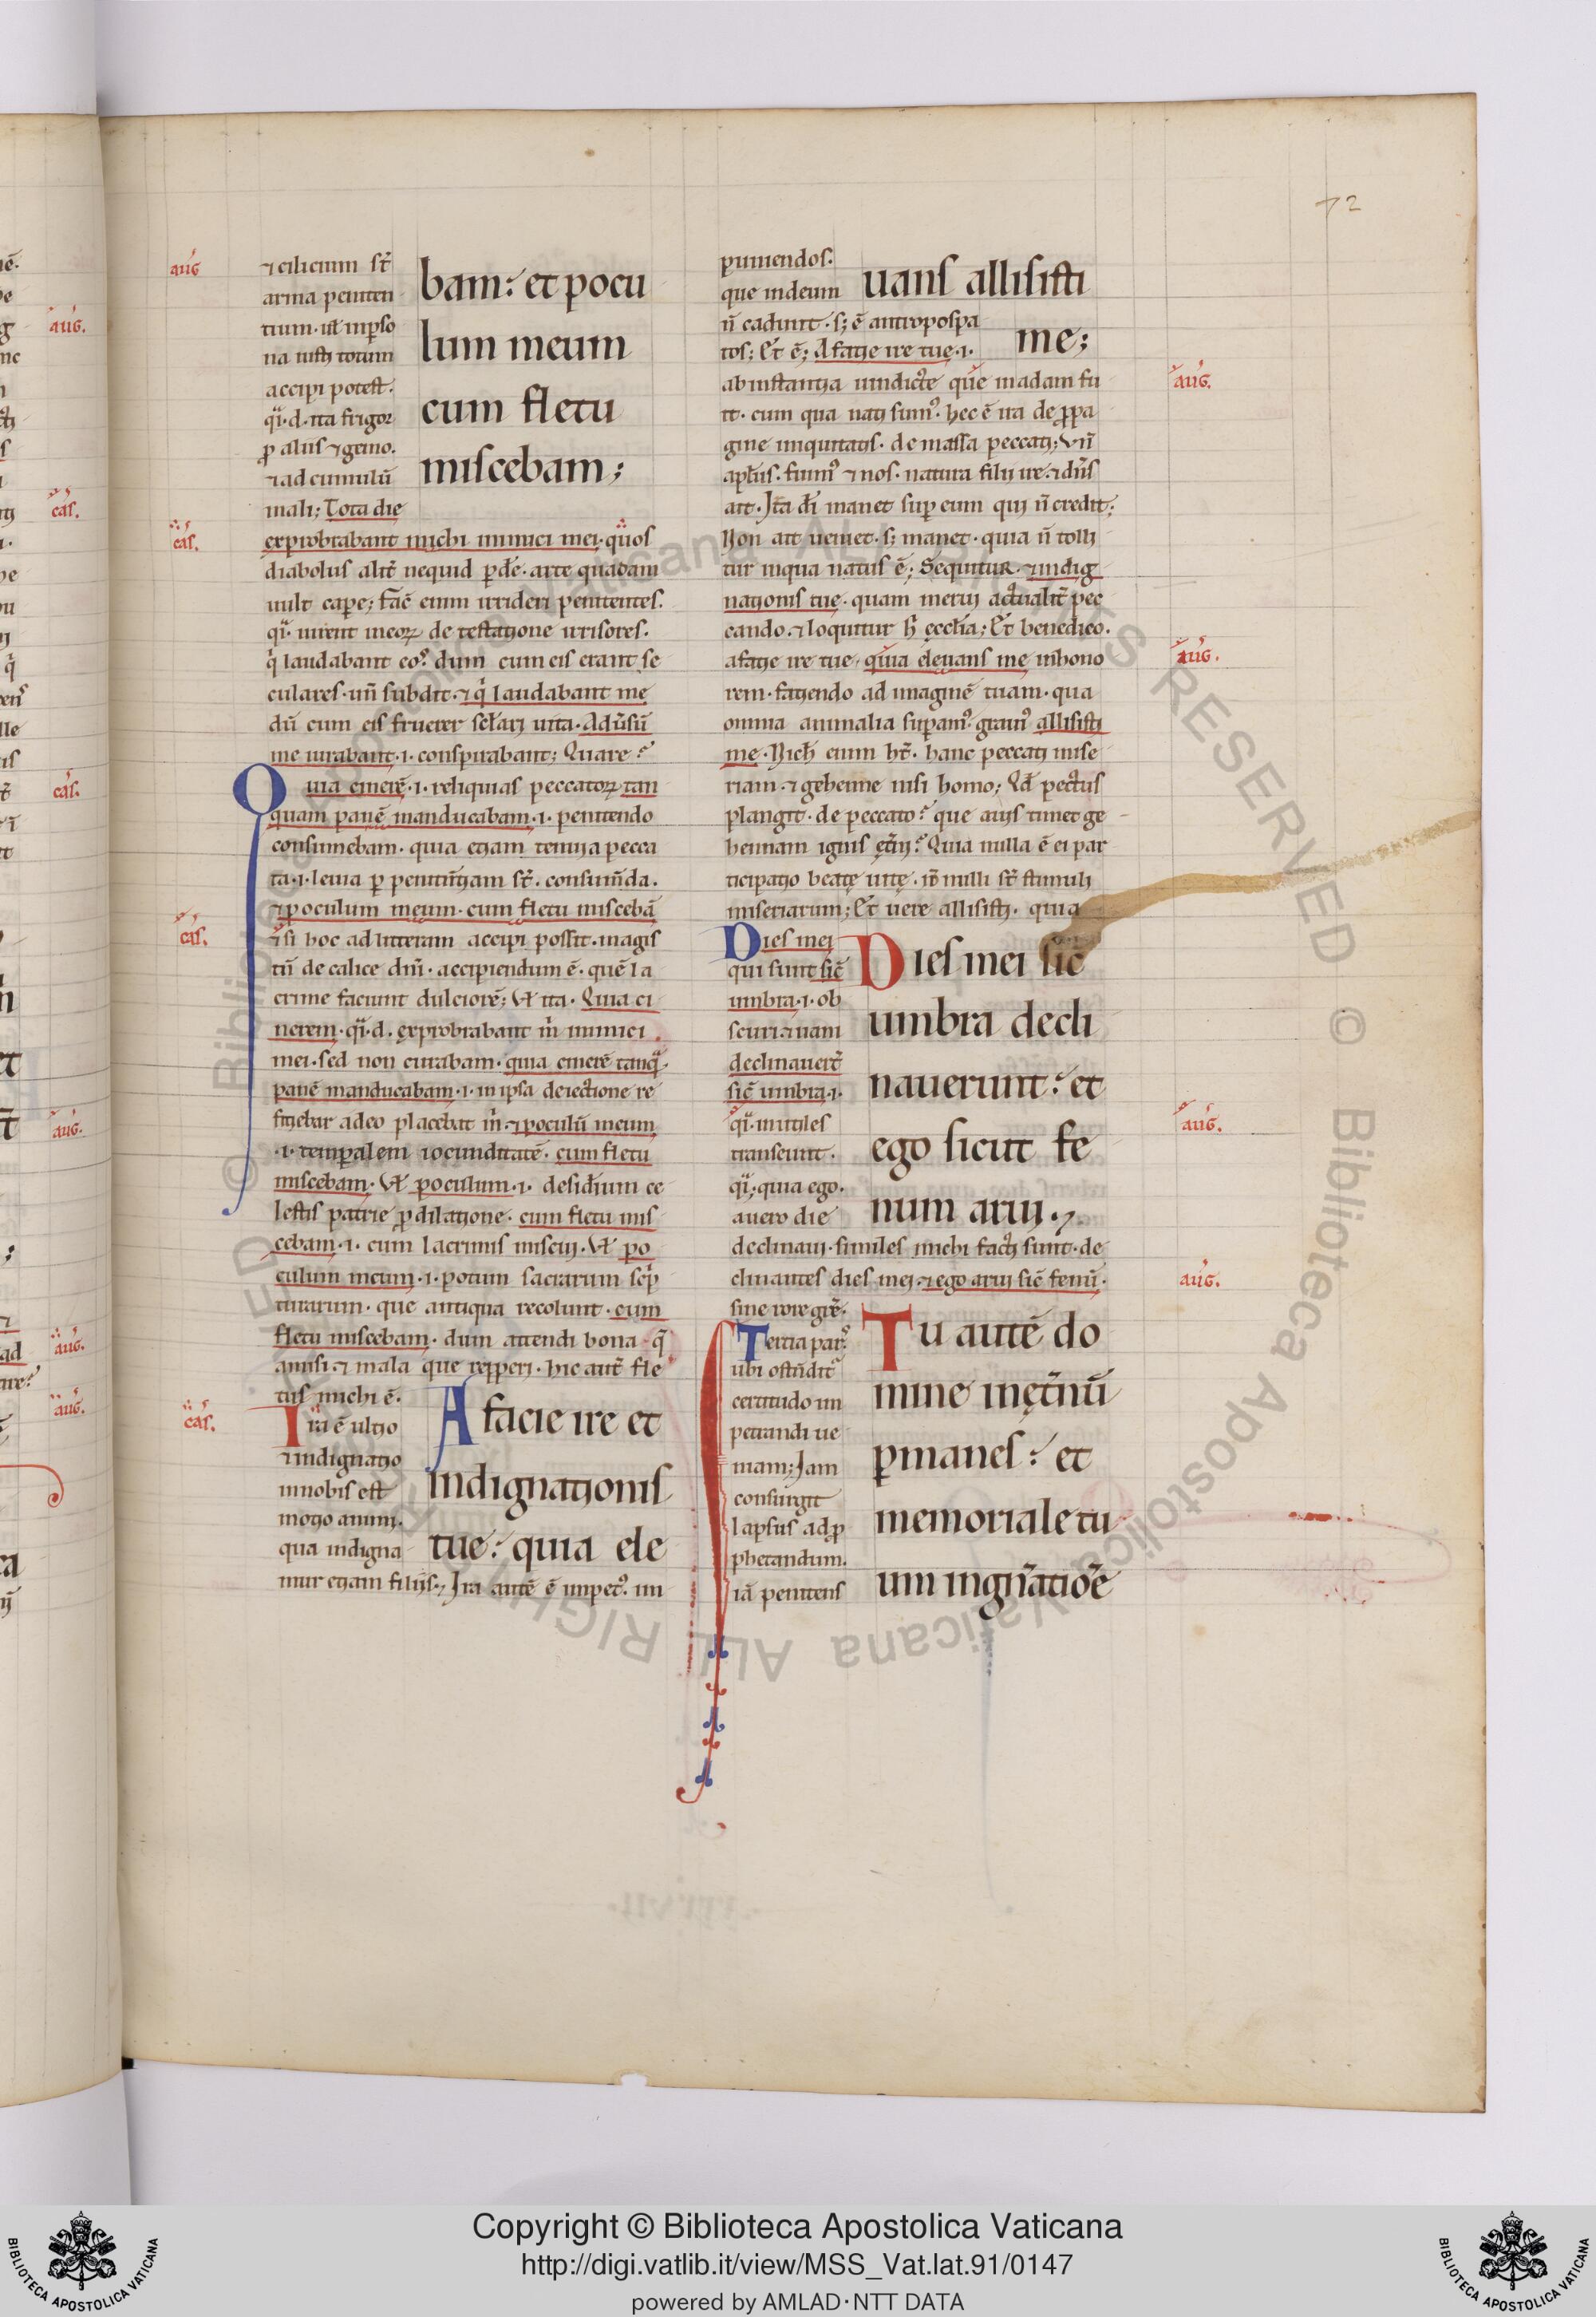 72
aug̃
⁊ cilicium st̃
arma peniten
tium · ul̃ in p̲so
na iusti totum
accipi potest.
qͥ · d · ita frigor
ꝓ aliis ⁊ gemo.
⁊ ad cumulũ
mali; Tota die
bam: et pocu
lum meum
cum fletu
miscebam;
cas̃.
exprobrabant michi inimici mei · quos
diabolus alit̃ nequid p̲de · arte quadam
uult cap̲e; fac̃ enim irrideri penitentes.
qͥ · mirent̃ meoꝝ de testatione irrisores.
qͥ laudabant eoˀ dum cum eis erant se
culares · uñ subdit · ⁊ qͥ laudabant me
dũ cum eis fruerer sclari uita · Adũsũ
me iurabant · i · conspirabant; Quare?
Quia cinerẽ · i · reliquias peccatoꝝ tan
quam panẽ manducabam · i · penitendo
consumebam · quia etiam tenuia pecca
ta · i · leuia p̲ penitentiam st̃ · consumẽda.
⁊ poculum meum · cum fletu miscebã
cas̃.
⁊ si hoc ad litteram accipi possit · magis
tñ de calice dñi · accipiendum ẽ · quẽ la
crime faciunt dulciorẽ; Vel ita · Quia ci
nerem · qͥ · d · exprobrabant m̃ inimici
mei · sed non curabam · quia cinerẽ tanqͣ
panẽ manducabam · i · in ipsa deiectione re
ficiebar adeo placebat m̃ · ⁊ poculũ meum
· i · temp̲alem iocunditatẽ · cum fletu
miscebam · Vel poculum · i · desid̃ium ce
lestis patrie ꝓ dilatione · cum fletu mis
cebam · i · cum lacrimis miscui · Vel po
culum meum · i · potum sacrarum sc̃p
turarum · que antiqua recolunt · cum
fletu miscebam · dum attendi bona q̃
amisi ⁊ mala que rep̲peri · hic aut̃ fle
tus michi ẽ.
cas̃.
Ira ẽ ultio
⁊ indignatio
in nobis est
motio animi.
qua indigna
mur etiam filiis · Ira autẽ ẽ impet̃ˀ · in
A facie ire et
indignationis
tue: quia ele
puniendos.
que in deum
ñ cadunt · s; ẽ antropospa
tos; Et̃ ẽ; A facie ire tue · i ·
uans allisisti
me;
aug̃.
ab instantia uindicte que in adam fu
it · cum qua nati sumˀ · hec ẽ ira de ꝓpa
gine iniquitatis · de massa peccati; Vñ
apl̃us · fuimˀ ⁊ nos · natura filii ire · ⁊ dñs
ait · Ira dei manet sup̲ eum qui ñ credit;
Non ait ueniet · s; manet · quia ñ tolli
tur in qua natus ẽ; Sequitur · ⁊ indig
nationis tue · quam merui actualit̃ pec
cando · ⁊ loquitur h̃ eccl̃ia; Et̃ benedico.
aug̃.
a facie ire tue · quia eleuans me in hono
rem · faciendo ad imaginẽ tuam · qua
omnia animalia sup̲amˀ · grauiˀ allisisti
me · Nich̃ enim ht̃ · hanc peccati mise
riam · ⁊ gehenne nisi homo; Qd̃ pectˀus
plangit · de peccato? que auis timet ge
hennam ignis et̃ni? Quia nulla ẽ ei par
ticipatio beate uite · iõ nulli st̃ stimuli
miseriarum; Et uere allisisti · quia
Dies mei
qui sunt sic̃
umbra · i · ob
scuri ⁊ uani
declinauert̃
sic̃ umbra · i ·
qͥ · inutiles
transeunt ·
qͥ; quia ego.
a uero die
Dies mei sic
umbra decli
nauerunt: et
ego sicut fe
num arui ·
aug̃.
declinaui · similes michi facti sunt · de
clinantes dies mei · ⁊ ego arui sic̃ fenũ ·
sine rore gr̃e.
aug̃.
Tertia parˀ
ubi ostẽditˀ
certitudo im
petrandi ue
niam; Iam
consurgit
lapsus ad ꝓ
phetandum.
iã penitens
Tu autẽ do
mine in et̃nũ
p̲manes: et
memoriale tu
um in gñatiõe
Copyright © Biblioteca Apostolica Vaticana
http://digi.vatlib.it/view/MSS_Vat.lat.91/0147
powered by AMLAD·NTT DATA
BIBLIOTECA APOSTOLICA VATICANA
BIBLIOTECA APOSTOLICA VATICANA
© Biblioteca Apostolica Vaticana ALL RIGHTS RESERVED